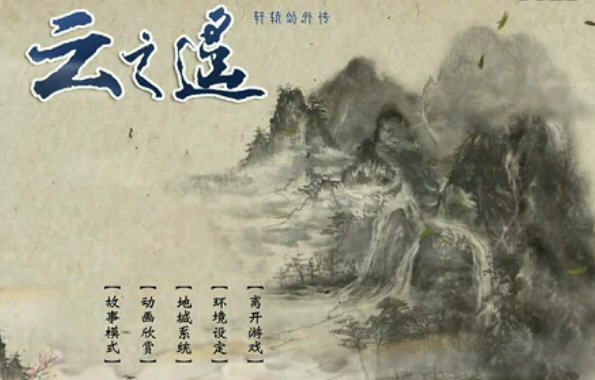 云之遥
轩辕剑外传
【故事模式】
【动画欣赏】
【地域系统】
【环境设定】
【离开游戏】